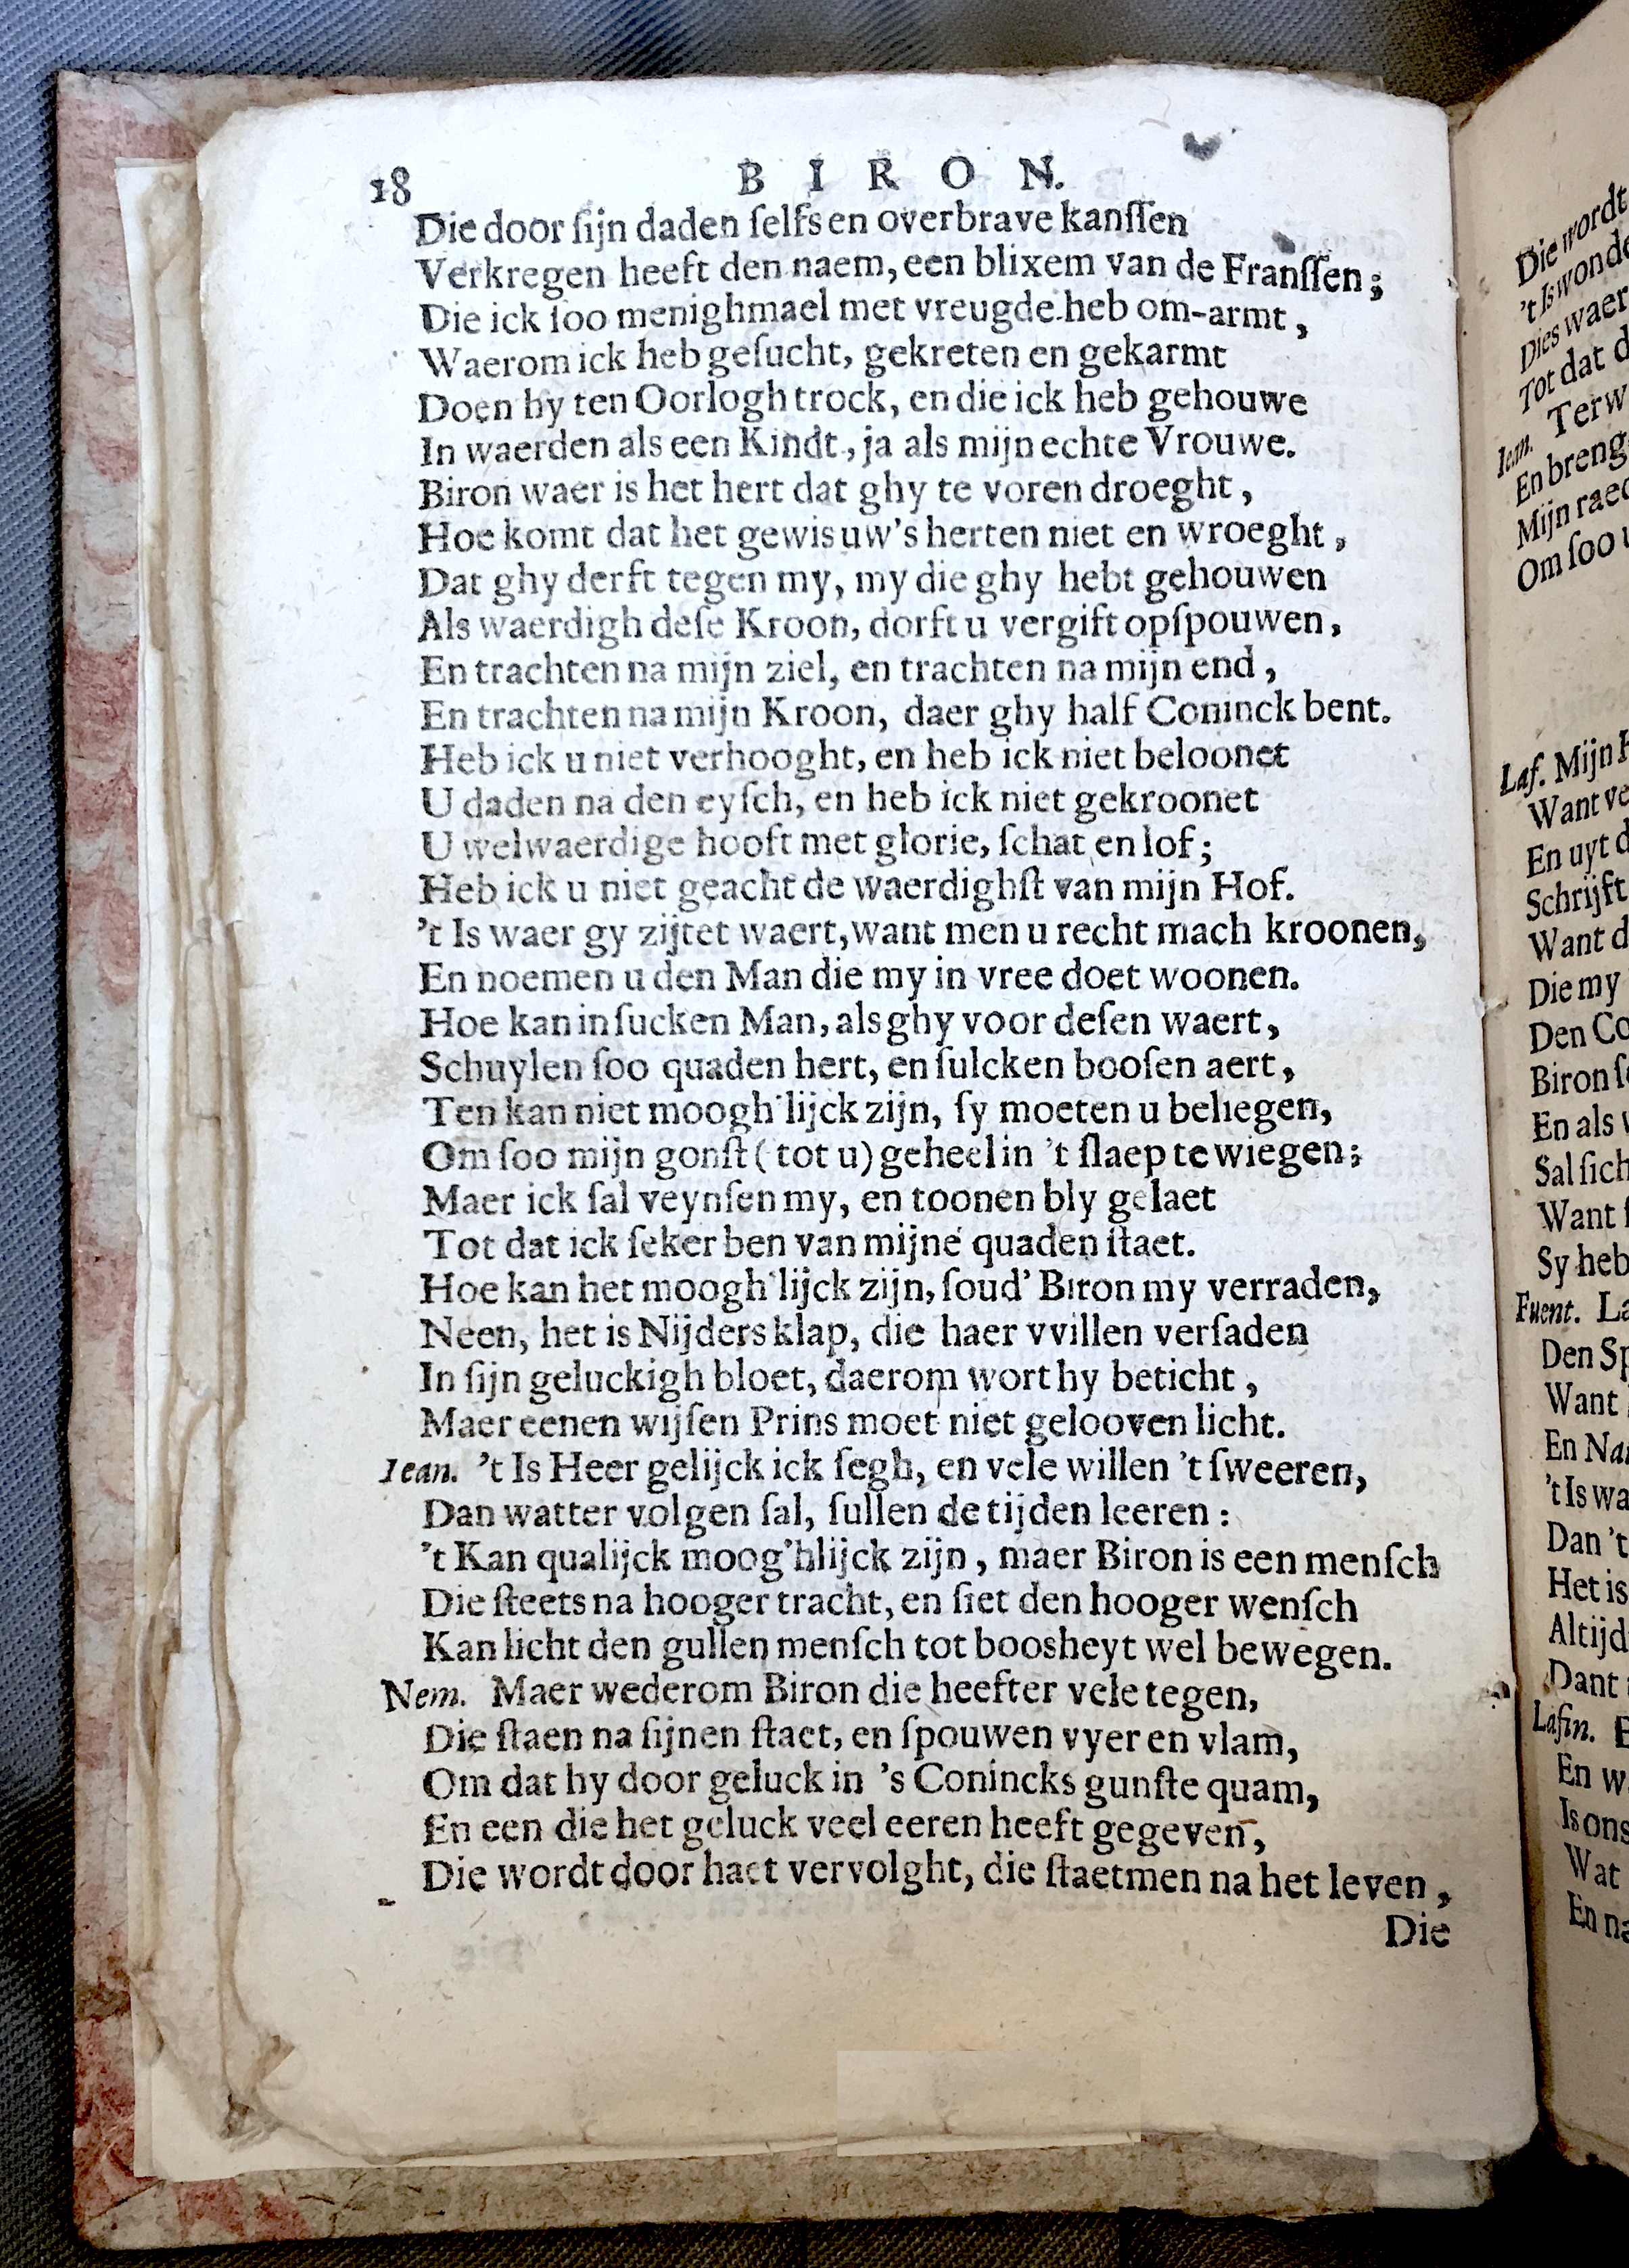 18 B I R O N.
Die door ſijn daden ſelfs en overbrave kanſſen
Verkregen heeft den naem, een blixem van de Franſſen;
Die ick ſoo menighmael met vreugde heb om-armt,
Waerom ick heb geſucht, gekreten en gekarmt
Doen hy ten Oorlogh trock, en die ick heb gehouwe
In waerden als een Kindt, ja als mijn echte Vrouwe.
Biron waer is het hert dat ghy te voren droeght,
Hoe komt dat het gewis uw's herten niet en wroeght,
Dat ghy derft tegen my, my die ghy hebt gehouwen
Als waerdigh deſe Kroon, dorft u vergift opſpouwen,
En trachten na mijn ziel, en trachten na mijn end,
En trachten na mijn Kroon, daer ghy half Coninck bent.
Heb ick u niet verhooght, en heb ick niet beloonet
U daden na den eyſch, en heb ick niet gekroonet
U welwaerdige hooft met glorie, ſchat en lof;
Heb ick u niet geacht de waerdighſt van mijn Hof.
't Is waer gy zijtet waert, want men u recht mach kroonen,
En noemen u den Man die my in vree doet woonen.
Hoe kan in ſucken Man, als ghy voor deſen waert,
Schuylen ſoo quaden hert, en ſulcken booſen aert,
Ten kan niet moogh'lijck zijn, ſy moeten u beliegen,
Om ſoo mijn gonſt (tot u) geheel in 't ſlaep te wiegen;
Maer ick ſal veynſen my, en toonen bly gelaet
Tot dat ick ſeker ben van mijne quaden ſtaet.
Hoe kan het moogh'lijck zijn, ſoud' Biron my verraden,
Neen, het is Nijders klap, die haer vvillen verſaden
In ſijn geluckigh bloet, daerom wort hy beticht,
Maer eenen wijſen Prins moet niet gelooven licht.
Iean. 't Is Heer gelijck ick ſegh, en vele willen 't ſweeren,
Dan watter volgen ſal, ſullen de tijden leeren:
't Kan qualijck moog'hlijck zijn, maer Biron is een menſch
Die ſteets na hooger tracht, en ſiet den hooger wenſch
Kan licht den gullen menſch tot boosheyt wel bewegen.
Nem. Maer wederom Biron die heefter vele tegen,
Die ſtaen na ſijnen ſtaet, en ſpouwen vyer en vlam,
Om dat hy door geluck in 's Conincks gunſte quam,
En een die het geluck veel eeren heeft gegeven,
Die wordt door haet vervolght, die ſtaetmen na het leven,
Die
Die wordt
Tot dat
Iem. Ter
En breng
Mijn
Om ſoo
Laf. Mijn
Want
En uyt
Schrijft
Want
Die my
Den
Biron
En als
Sal ſich
Want
Sy
Fuent.
Den
Want
En
't Is
Dan 't
Het is
Altijd
Dant
Lafin.
En
Is ons
Wat
En